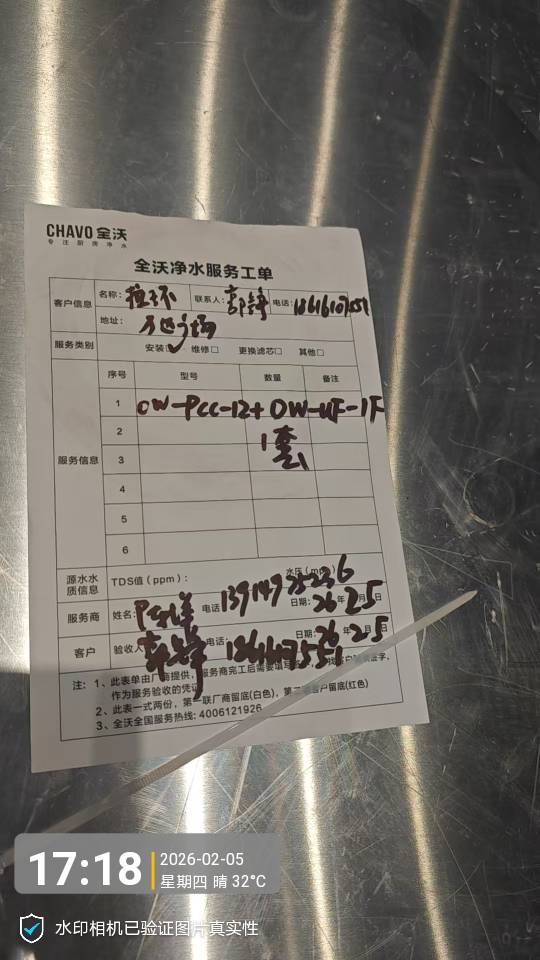 CHAVO 全沃
专注厨房净水
全沃净水服务工单
客户信息 名称: 联系人: 电话:
地址:
服务类别 安装 维修□ 更换滤芯□ 其他□
序号 型号 数量 备注
1 OW-PCC-12+ OW-UF-1F
2 1套
服务信息 3
4
5
6
源水水质信息 TDS值(ppm): 水压
服务商 姓名: 电话 13914975236 日期: 26年 2月 5日
客户 验收人 电话: 日期: 26年 2月 5日
注: 1、此表单由厂商提供,服务商完工后需要填写
作为服务验收的凭证
2、此表一式两份,第一联厂商留底(白色),第二联客户留底(红色)
3、全沃全国服务热线: 4006121926
17:18
2026-02-05
星期四 晴 32°C
水印相机已验证图片真实性